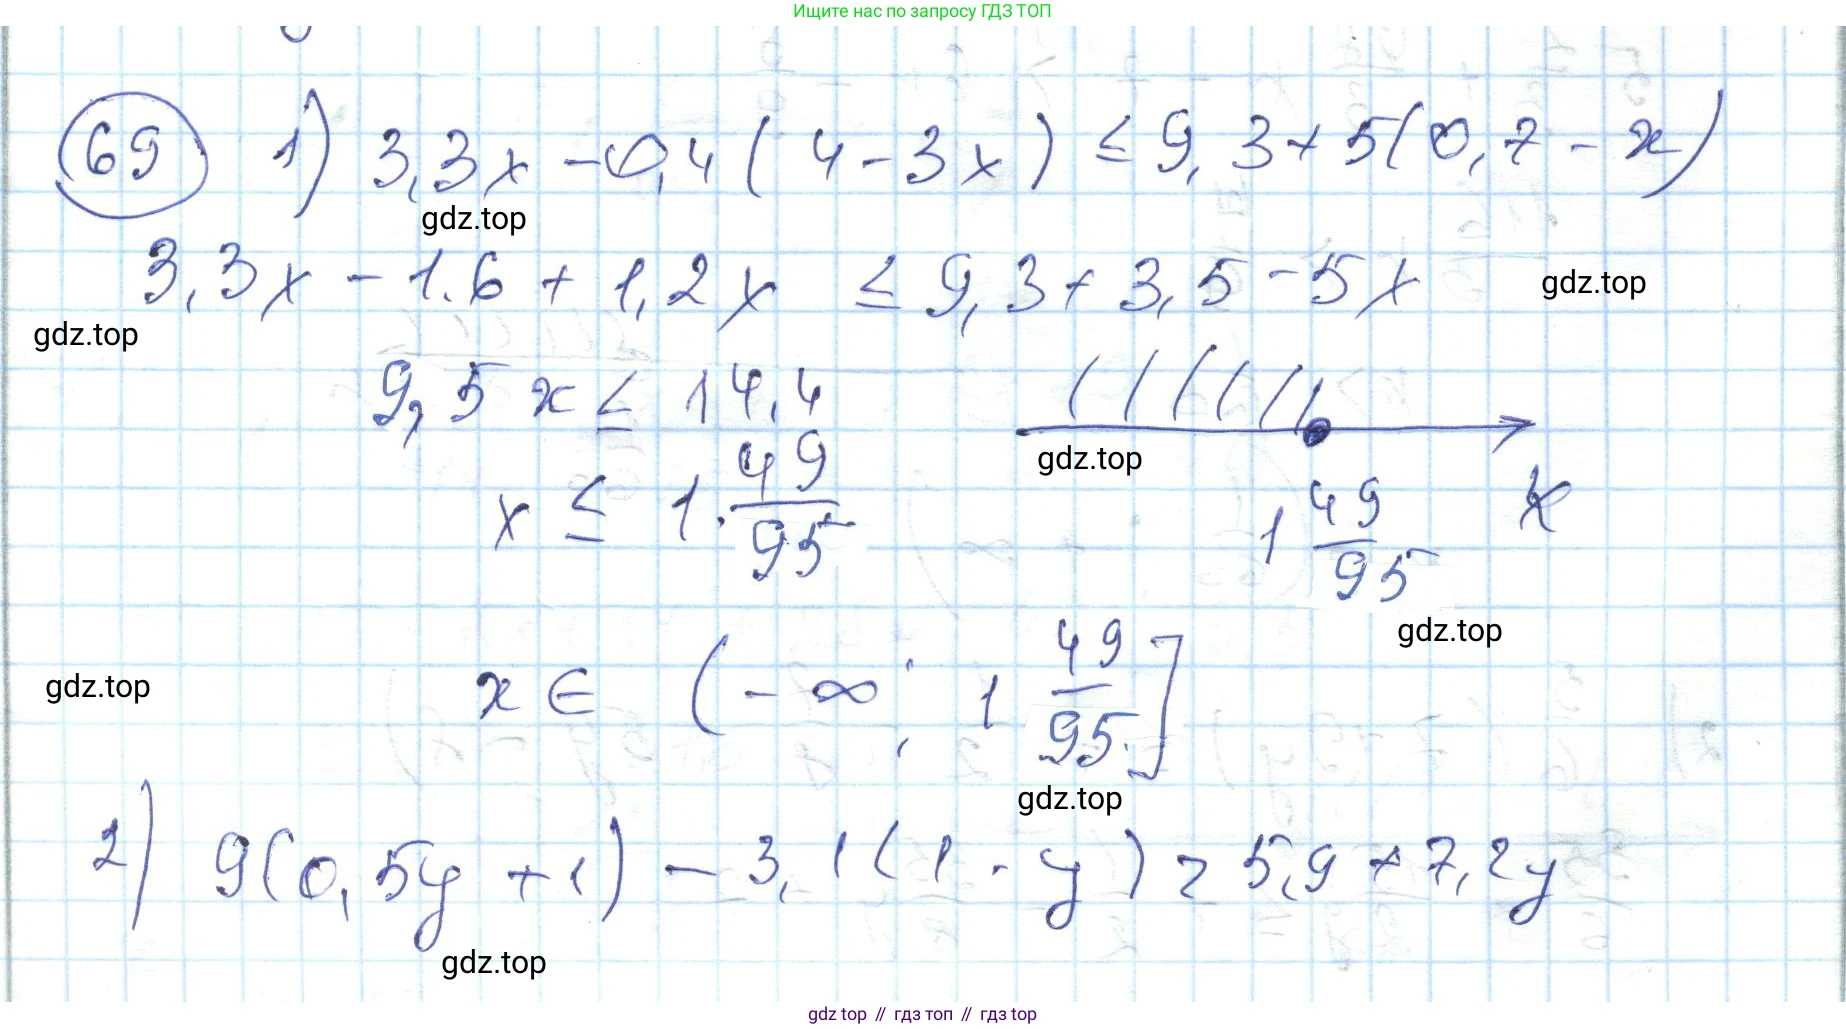 Ищите нас по запросу ГДЗ ТОП
69 1) 3,3x - 0,4(4 - 3x) ≤ 9,3 + 5(0,7 - x)
gdz.top
3,3x - 1.6 + 1,2x ≤ 9,3 + 3,5 - 5x
gdz.top
gdz.top
9,5x ≤ 14,4
gdz.top
x ≤ 1 49/95
1 49/95 x
gdz.top
x ∈ (-∞; 1 49/95]
gdz.top
gdz.top
2) 9(0,5y + 1) - 3,1(1 - y) > 5,9 + 7,2y
gdz.top
gdz top // гдз топ // гдз top